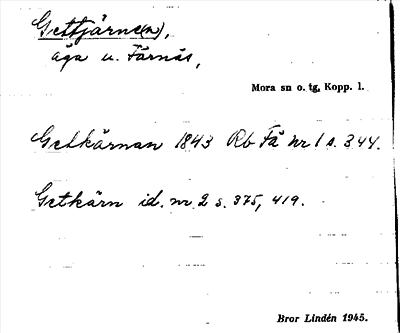 Gettjärne(n),
äga u. Färnäs,
Mora sn o. tg, Kopp. l.
Getkärnan 1843 Rb Få nr 1 s. 344.
Getkärn id. nr 2 s. 375, 419.
Bror Lindén 1945.